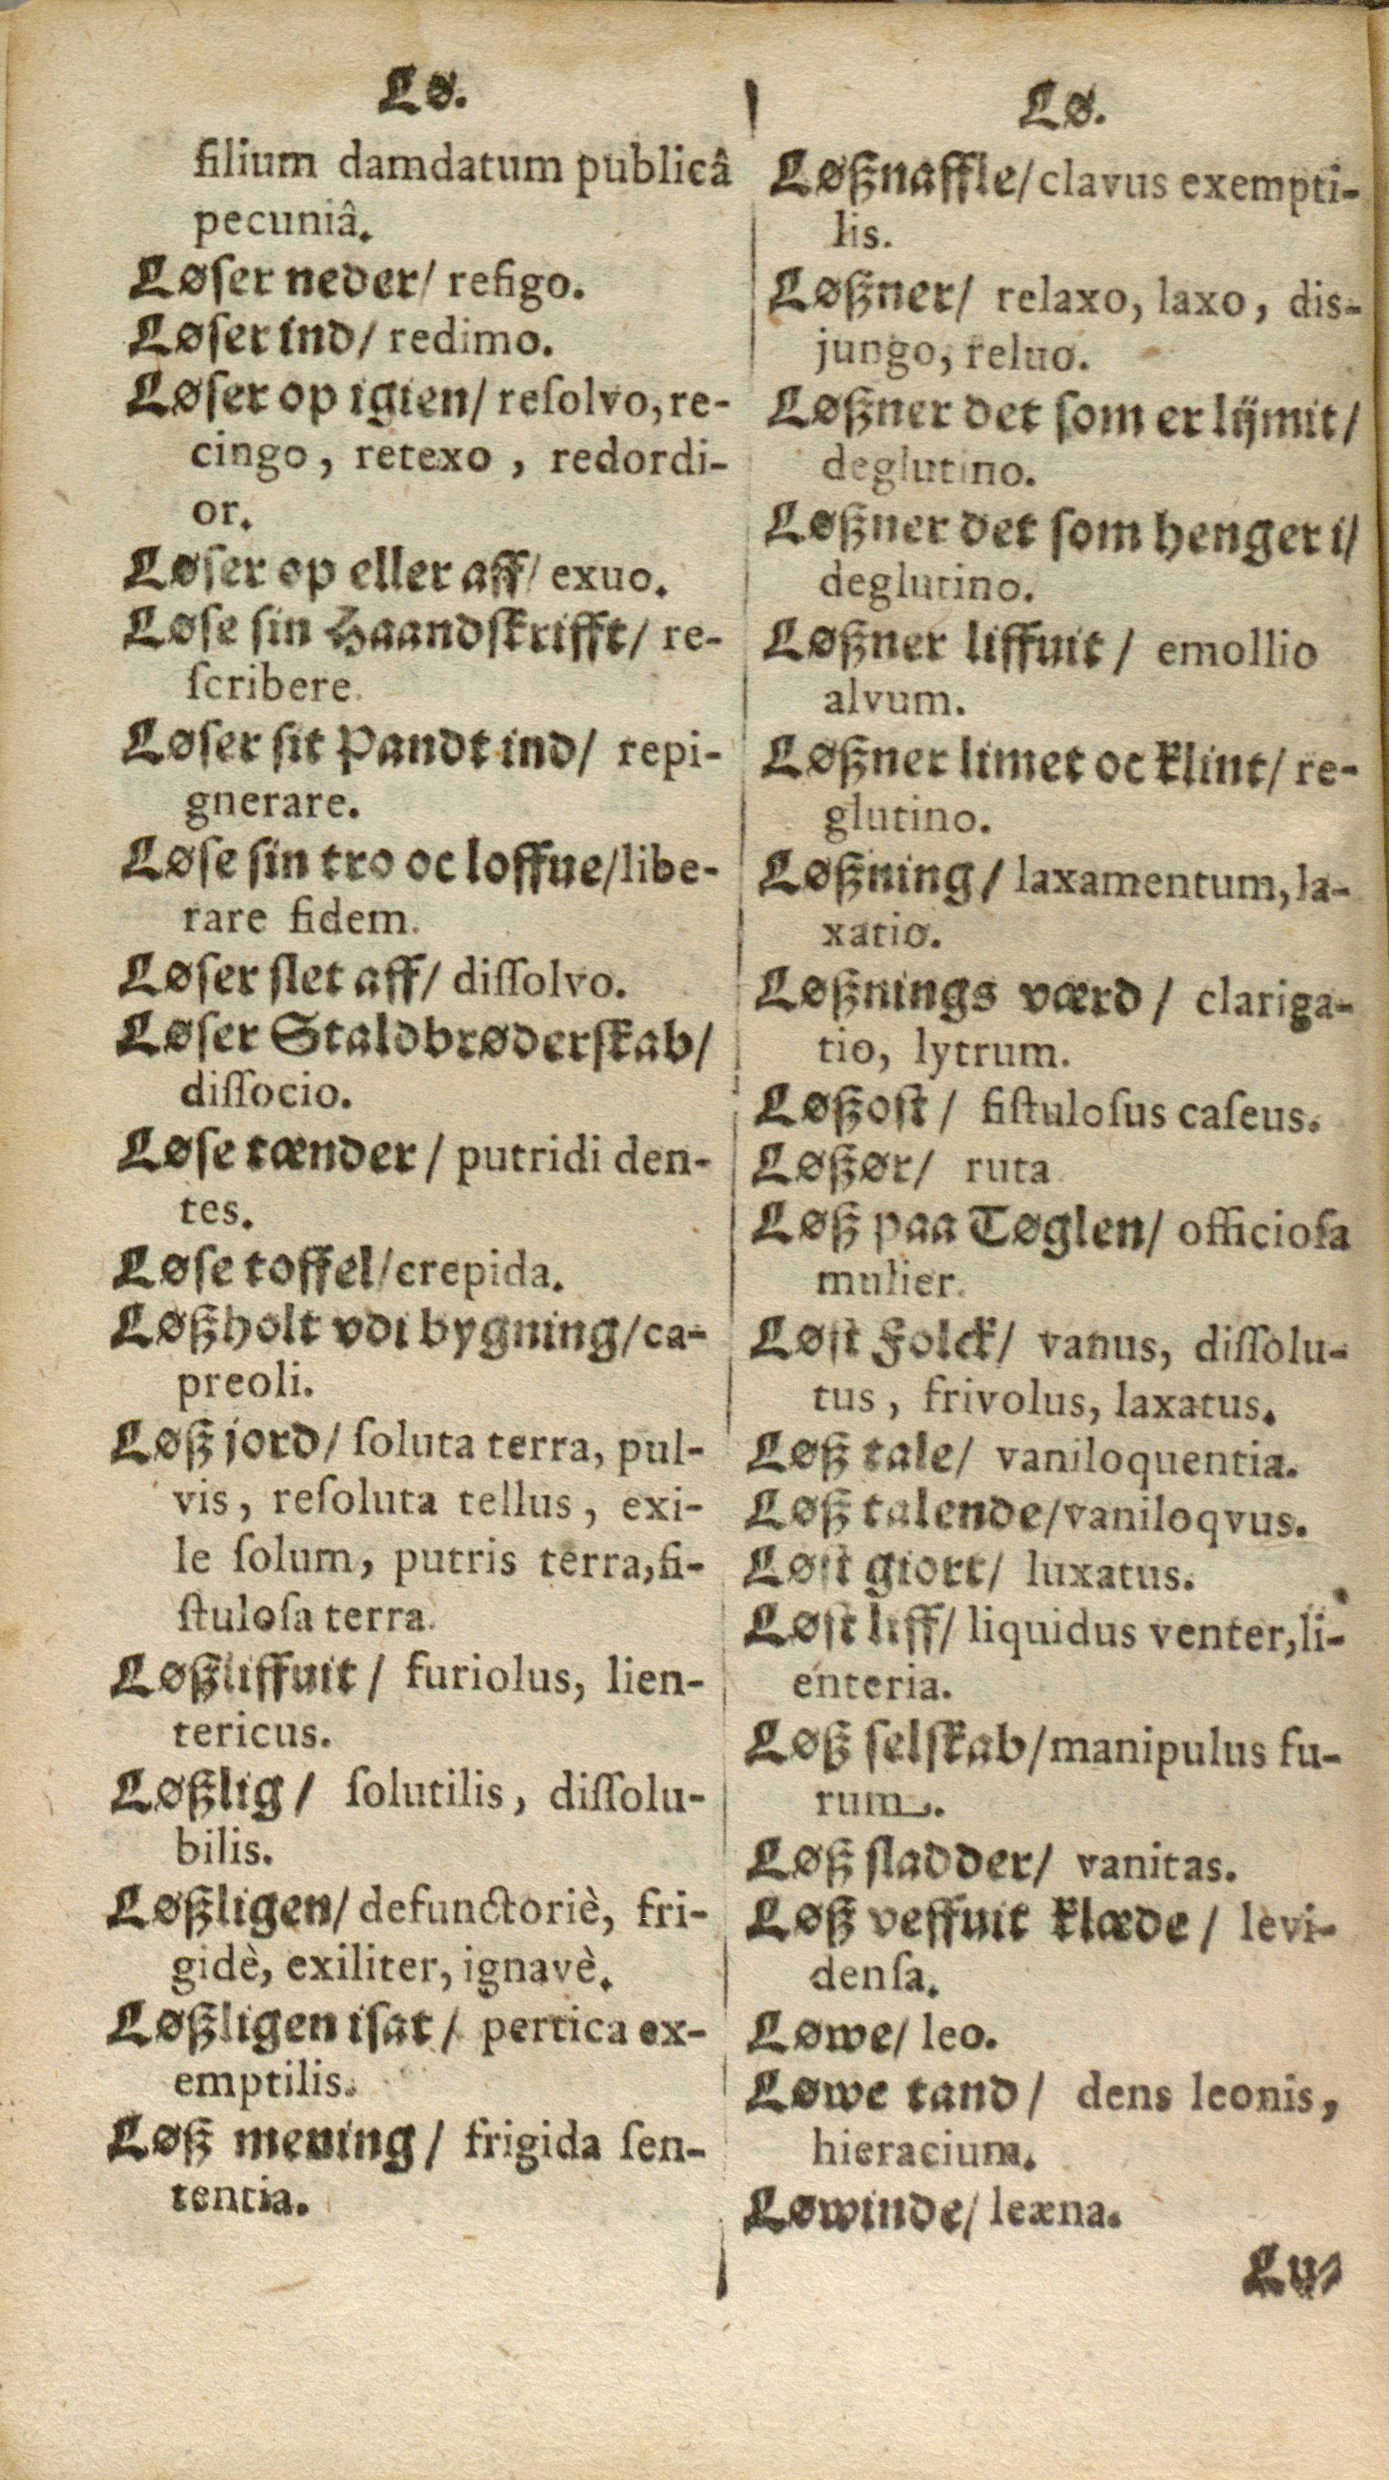 Lø.
filium damdatum publicâ
pecuniâ.
Løſer neder/ refigo.
Løſer ind/ redimo.
Løſer op igien/ reſolvo, re-
cingo, retexo, redordi-
or.
Løſer op eller aff/ exuo.
Løſe ſin Haandſkrifft/ re-
ſcribere.
Løſer ſit Pandt ind/ repi-
gnerare.
Løſe ſin tro oc loffue/ libe-
rare fidem.
Løſer ſlet aff/ diſſolvo.
Løſer Staldbrøderſkab/
diſſocio.
Løſe tænder/ putridi den-
tes.
Løſe toffel/ crepida.
Løßholt vdi bygning/ ca-
preoli.
Løß jord/ ſoluta terra, pul-
vis, reſoluta tellus, exi-
le ſolum, putris terra, fi-
ſtuloſa terra.
Løßliffuit/ furiolus, lien-
tericus.
Løßlig/ ſolutilis, diſſolu-
bilis.
Løßligen/ defunctoriè, fri-
gidè, exiliter, ignavè.
Løßligen iſat/ pertica ex-
emptilis.
Løß mening/ frigida ſen-
tentia.
Lø.
Løßnaffle/ clavus exempti-
lis.
Løßner/ relaxo, laxo, dis-
jungo, reluo.
Løßner det ſom er lijmit/
deglutino.
Løßner det ſom henger i/
deglutino.
Løßner liffuit/ emollio
alvum.
Løßner limet oc klint/ re-
glutino.
Løßning/ laxamentum, la-
xatio.
Løßnings værd/ clariga-
tio, lytrum.
Løßoſt/ fiſtuloſus caſeus.
Løßør/ ruta
Løß paa Tøglen/ officioſa
mulier.
Løſt Folck/ vanus, diſſolu-
tus, frivolus, laxatus.
Løß tale/ vaniloquentia.
Løß talende/ vaniloqvus.
Løſt giort/ luxatus.
Løſt liff/ liquidus venter, li-
enteria.
Løß ſelſkab/ manipulus fu-
rum.
Løß ſladder/ vanitas.
Løß veffuit klæde/ levi-
denſa.
Løwe/ leo.
Løwe tand/ dens leonis,
hieracium.
Løwinde/ leæna.
Lu-